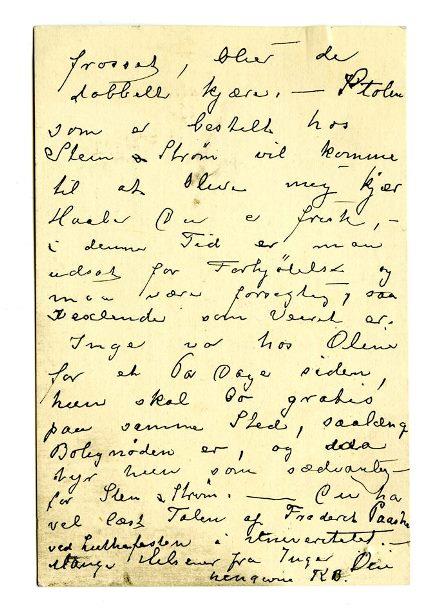 frosset, blir de
dobbelt kjære. — Stolen
som er bestilt hos
Steen & Strøm vil komme
til at blive mig kjær
Haaber Du er frisk, —
i denne Tid er man
udsat for Forkjølelse og
maa være forsigtig, saa
vexlende som Veiret er.
Inge var hos Oline
for et Par Dage siden,
hun skal bo gratis
paa samme Sted, saalænge
Bolignøden er, og
syr hun som sædvanlig
for Steen & Strøm. — Du har
vel læst Talen af Frederik Paasche
ved Lutherfesten i Universitetet —
Mange Hilsener fra Inge Din
hengivne KB.